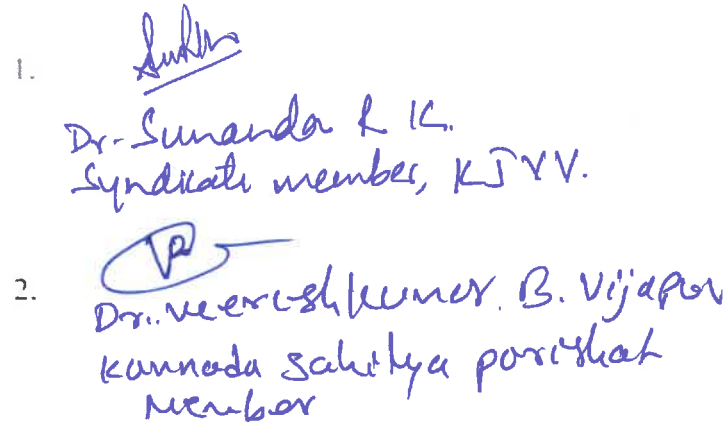 1.
Dr. Sunanda R K.
Syndicate member, KJVV.
2.
Dr. Veereshkumar. B. Vijapur
Kannada sahitya parishat
Member